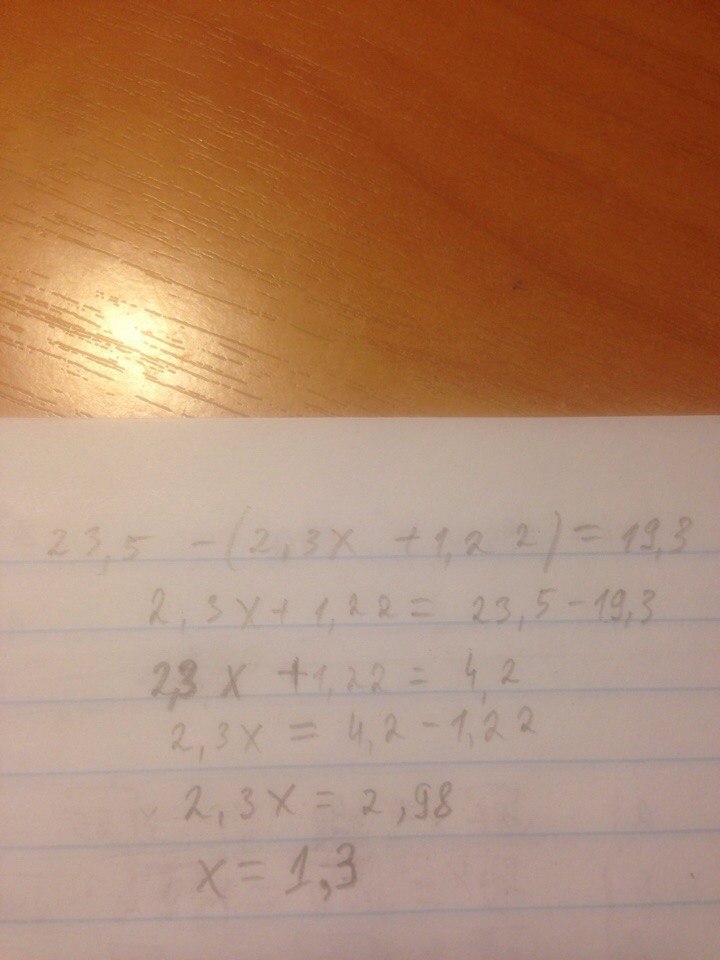 23,5 -(2,3x +1,22)=19,3
2,3x+1,22= 23,5-19,3
2,3 x +1,22= 4,2
2,3x = 4,2-1,22
2,3x=2,98
x=1,3